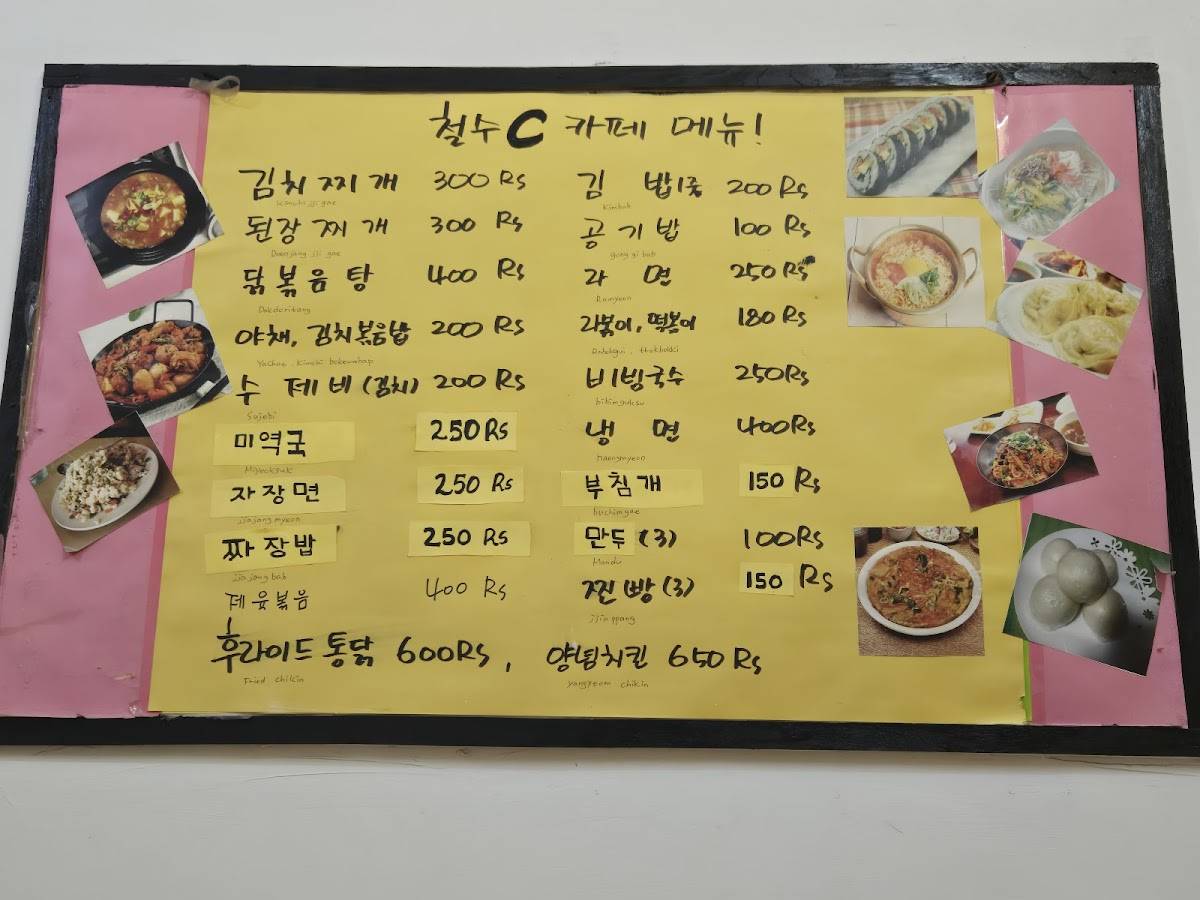 철수 C 카페 메뉴!
김치찌개 300 Rs
Kimchi jji gae
된장찌개 300 Rs
Doenjang jji gae
닭볶음탕 400 Rs
Dakdoritang
야채, 김치볶음밥 200 Rs
Yachae, Kimchi bokeumbap
수제비 (김치) 200 Rs
Sujebi
미역국 250 Rs
Miyeokguk
자장면 250 Rs
jjajangmyeon
짜장밥 250 Rs
jjajangbab
제육볶음 400 Rs
김밥 1줄 200 Rs
Kimbab
공기밥 100 Rs
gong gi bab
라면 250 Rs
Ramyeon
라볶이, 떡볶이 180 Rs
비빔국수 250 Rs
bibimguksu
냉면 400 Rs
naengmyeon
부침개 150 Rs
buchimgae
만두 (3) 100 Rs
Mandu
찐빵 (3) 150 Rs
jjinppang
후라이드 통닭 600 Rs, 양념치킨 650 Rs
Fried chikin yangnyeom chikin